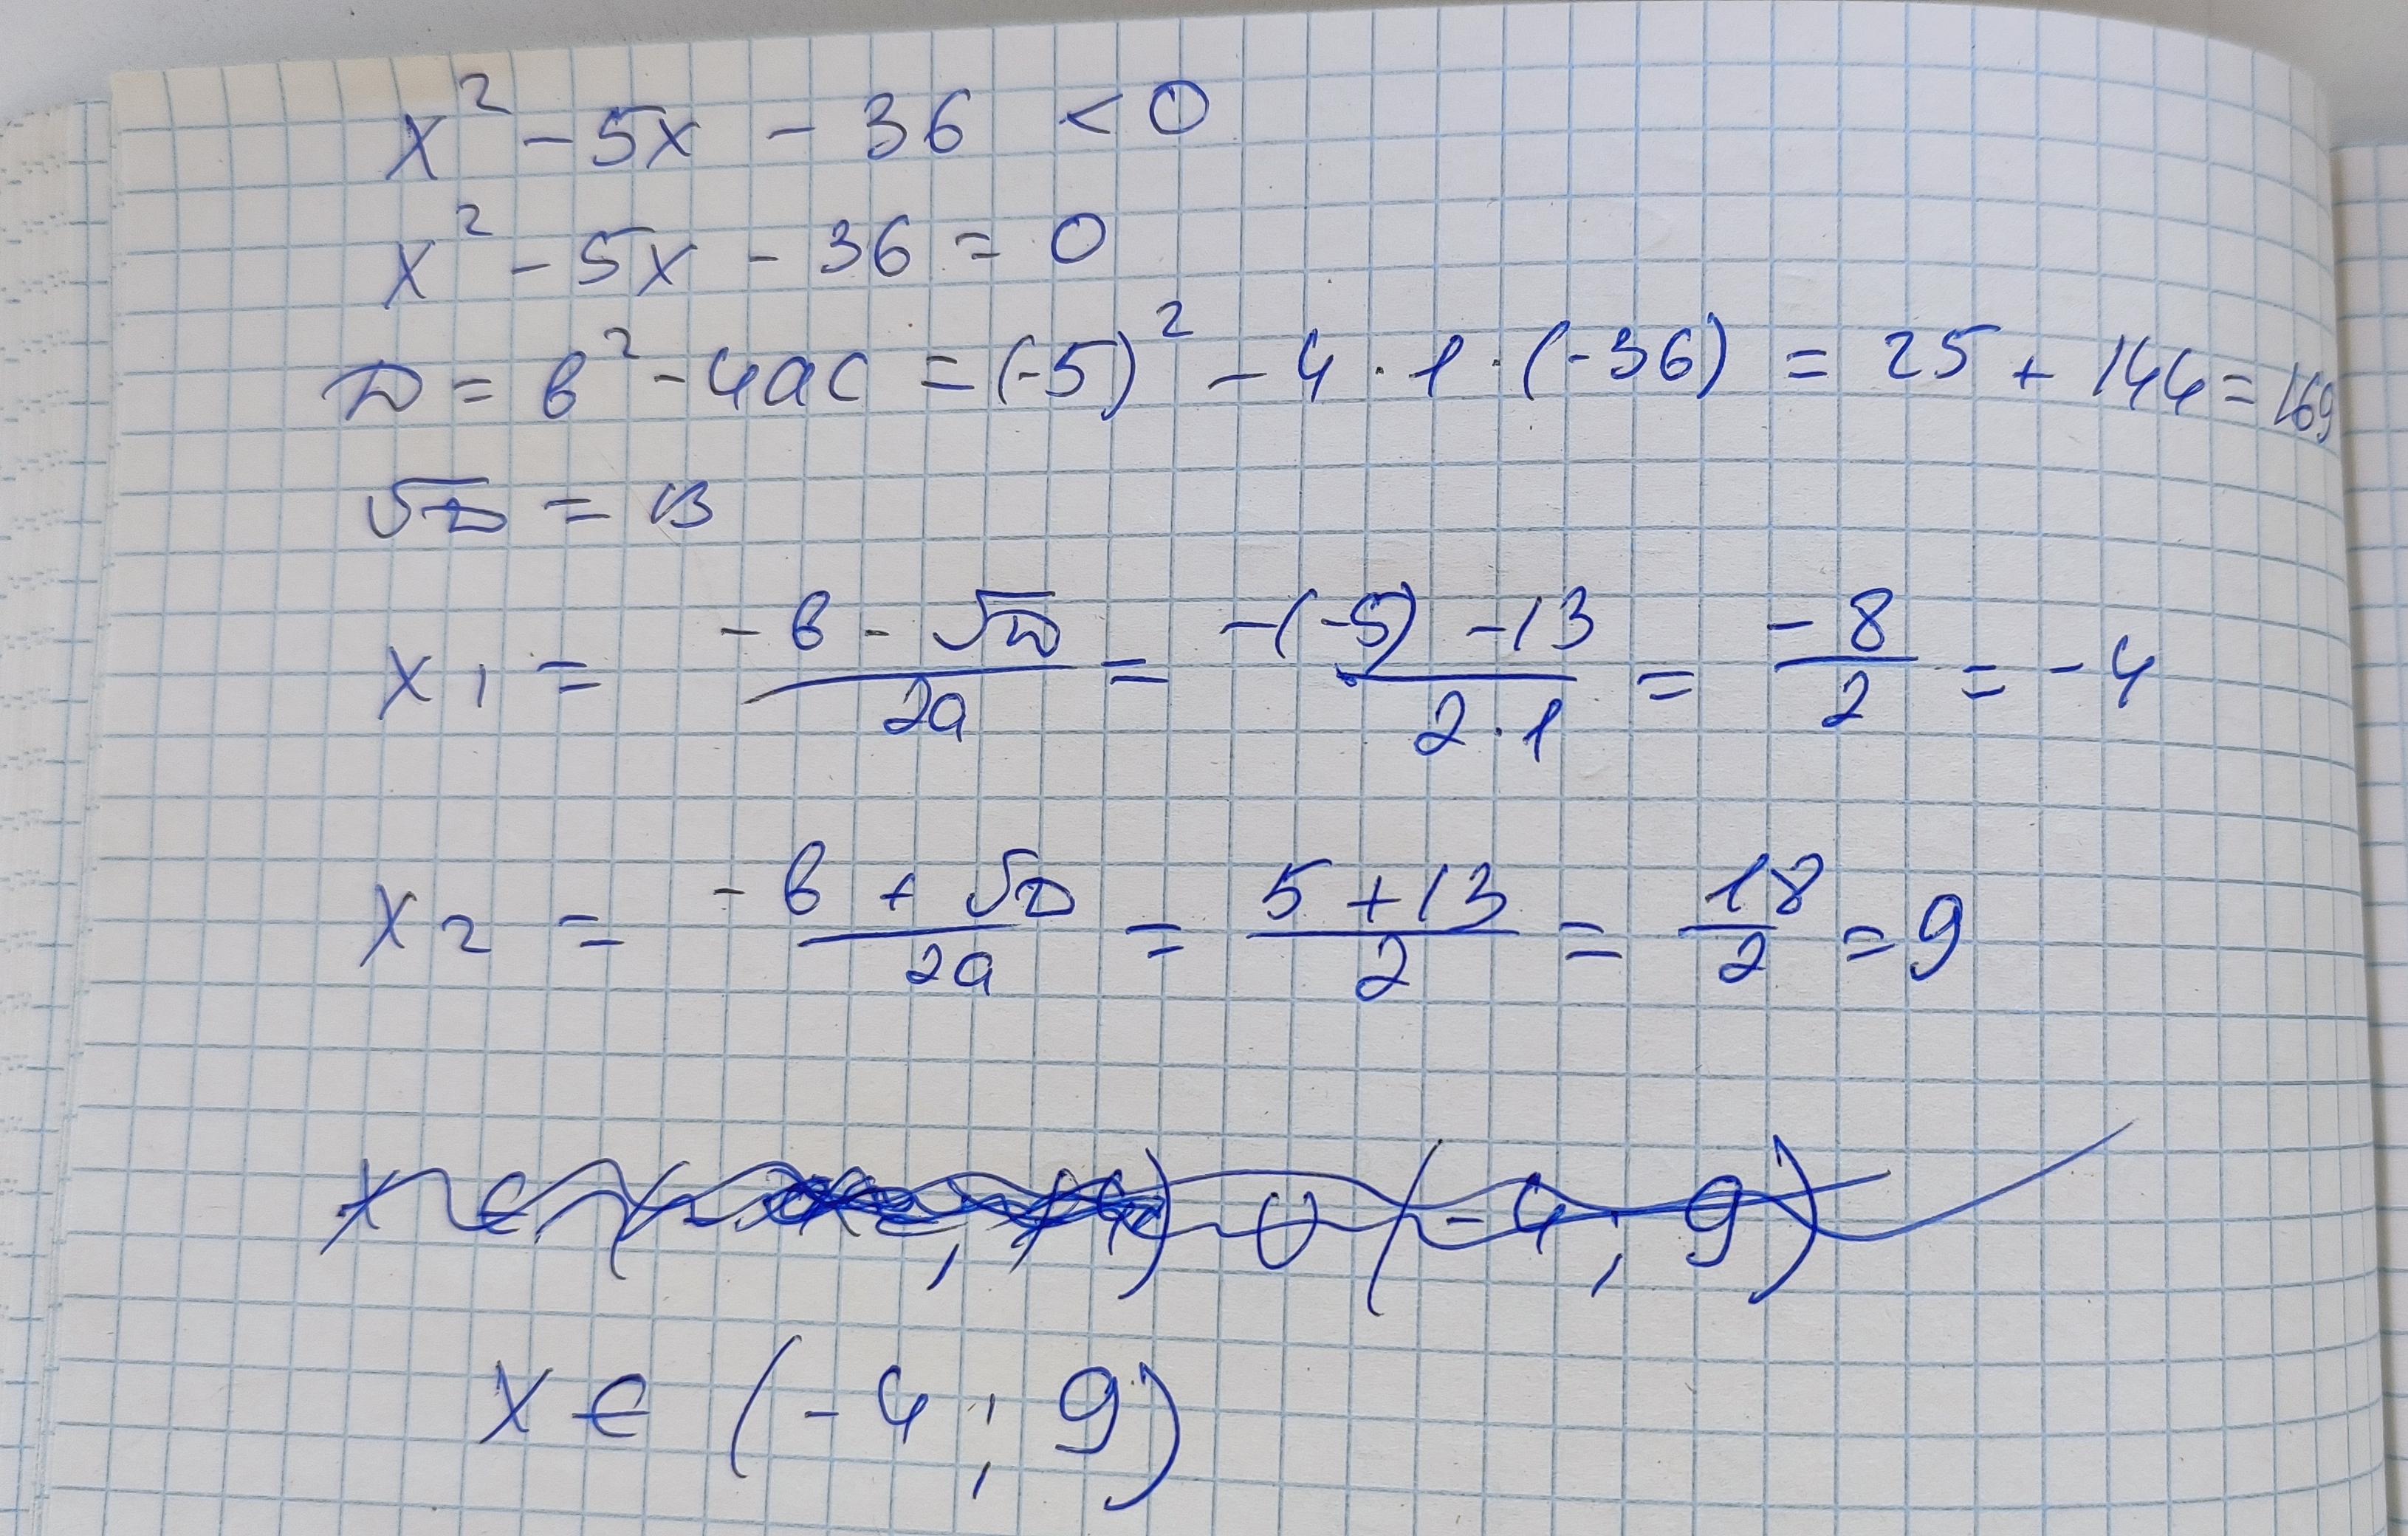 x² - 5x - 36 < 0
x² - 5x - 36 = 0
D = b² - 4ac = (-5)² - 4 · 1 · (-36) = 25 + 144 = 169
√D = 13
x₁ = (-b - √D)/(2a) = (-(-5) - 13)/(2 · 1) = -8/2 = -4
x₂ = (-b + √D)/(2a) = (5 + 13)/2 = 18/2 = 9
x ∈ ( ; ) ∪ (-4 ; 9)
x ∈ (-4 ; 9)